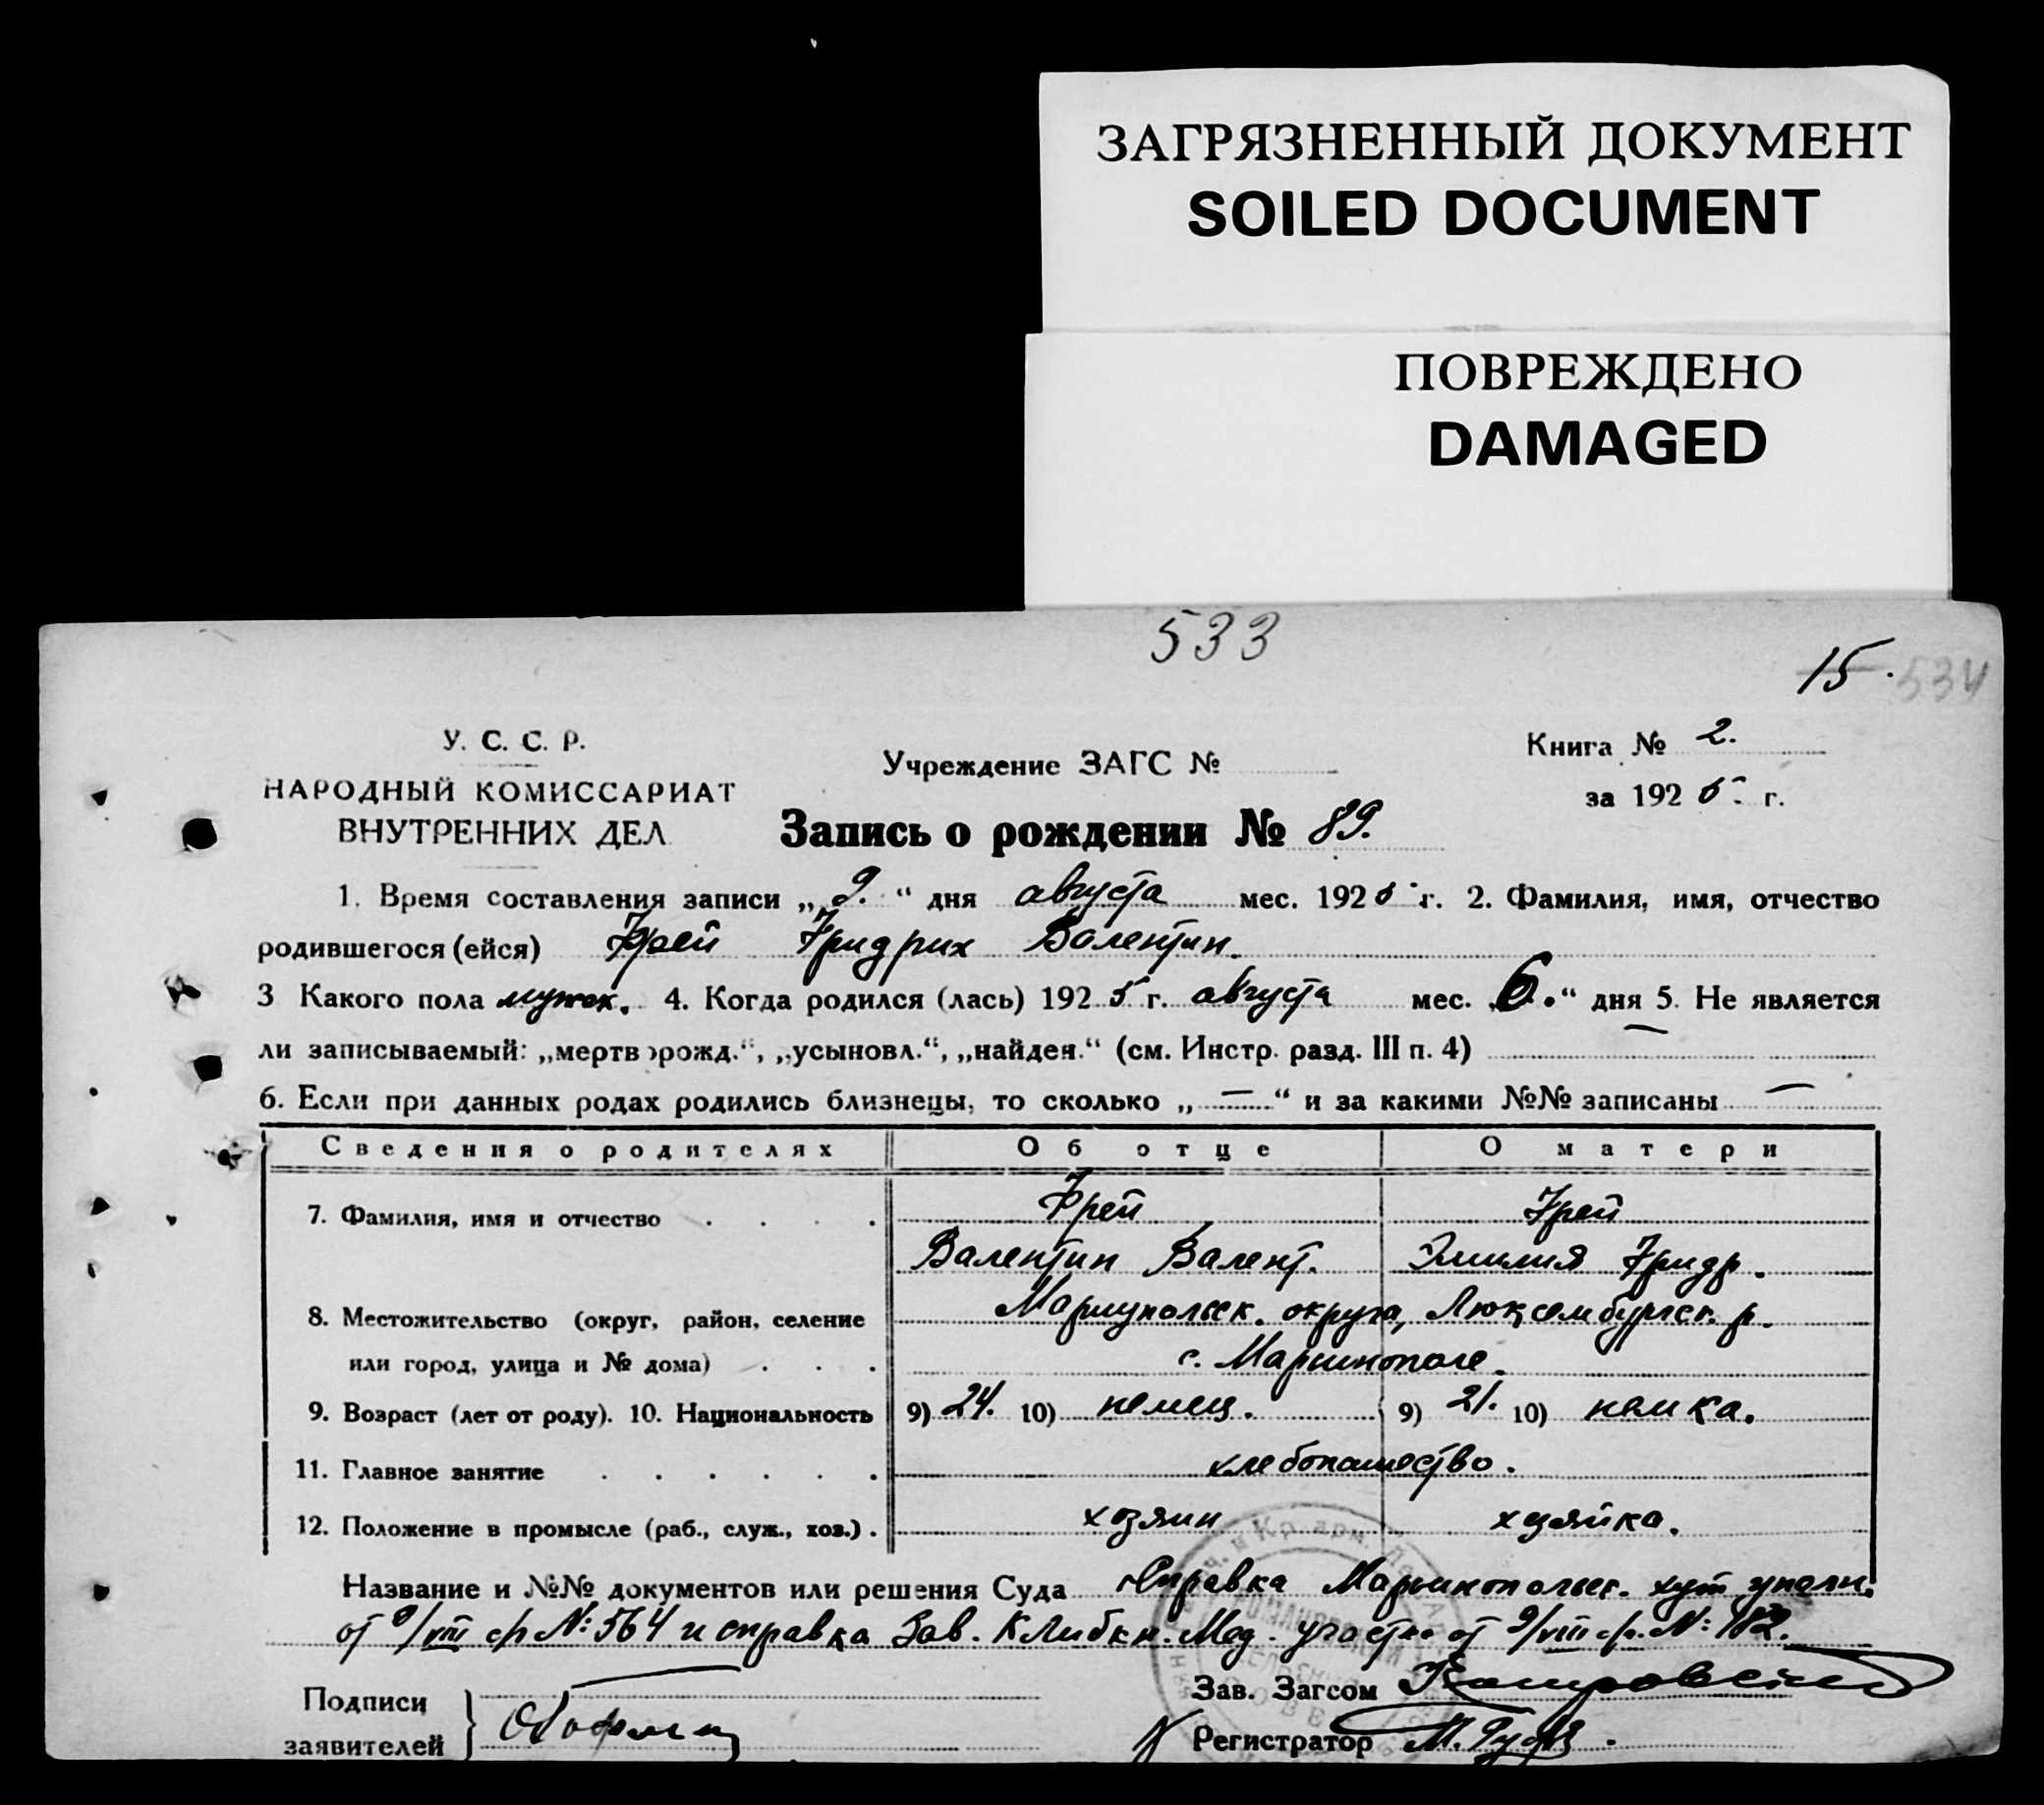 ЗАГРЯЗНЕННЫЙ ДОКУМЕНТ
SOILED DOCUMENT
ПОВРЕЖДЕНО
DAMAGED
533
15. 534
У. С. С. Р.
НАРОДНЫЙ КОМИССАРИАТ
ВНУТРЕННИХ ДЕЛ
Учреждение ЗАГС №
Книга № 2.
за 1925 г.
Запись о рождении № 89.
1. Время составления записи „9.“ дня августа мес. 1925 г. 2. Фамилия, имя, отчество
родившегося (ейся) Фрей Фридрих Валентин.
3 Какого пола мужск. 4. Когда родился (лась) 1925 г. августа мес. „6.“ дня 5. Не является
ли записываемый: „мертворожд.“, „усыновл.“, „найден.“ (см. Инстр. разд. III п. 4) —
6. Если при данных родах родились близнецы, то сколько „—“ и за какими №№ записаны —
Сведения о родителях Об отце О матери
7. Фамилия, имя и отчество Фрей Фрей
Валентин Валент. Эмилия Фридр.
8. Местожительство (округ, район, селение Мариупольск. округа, Люксембургск. р.
или город, улица и № дома) с. Марьинополе.
9. Возраст (лет от роду). 10. Национальность 9) 24. 10) немец. 9) 21. 10) немка.
11. Главное занятие хлебопашество.
12. Положение в промысле (раб., служ., хоз.). хозяин хозяйка.
Название и №№ документов или решения Суда Справка Марьинопольск. хут
от 9/VIII с/г №: 564 и справка Зав. К Либкн. Мед. участка от 9/VIII с/г. №: 182.
Подписи
заявителей
Зав. Загсом
Регистратор